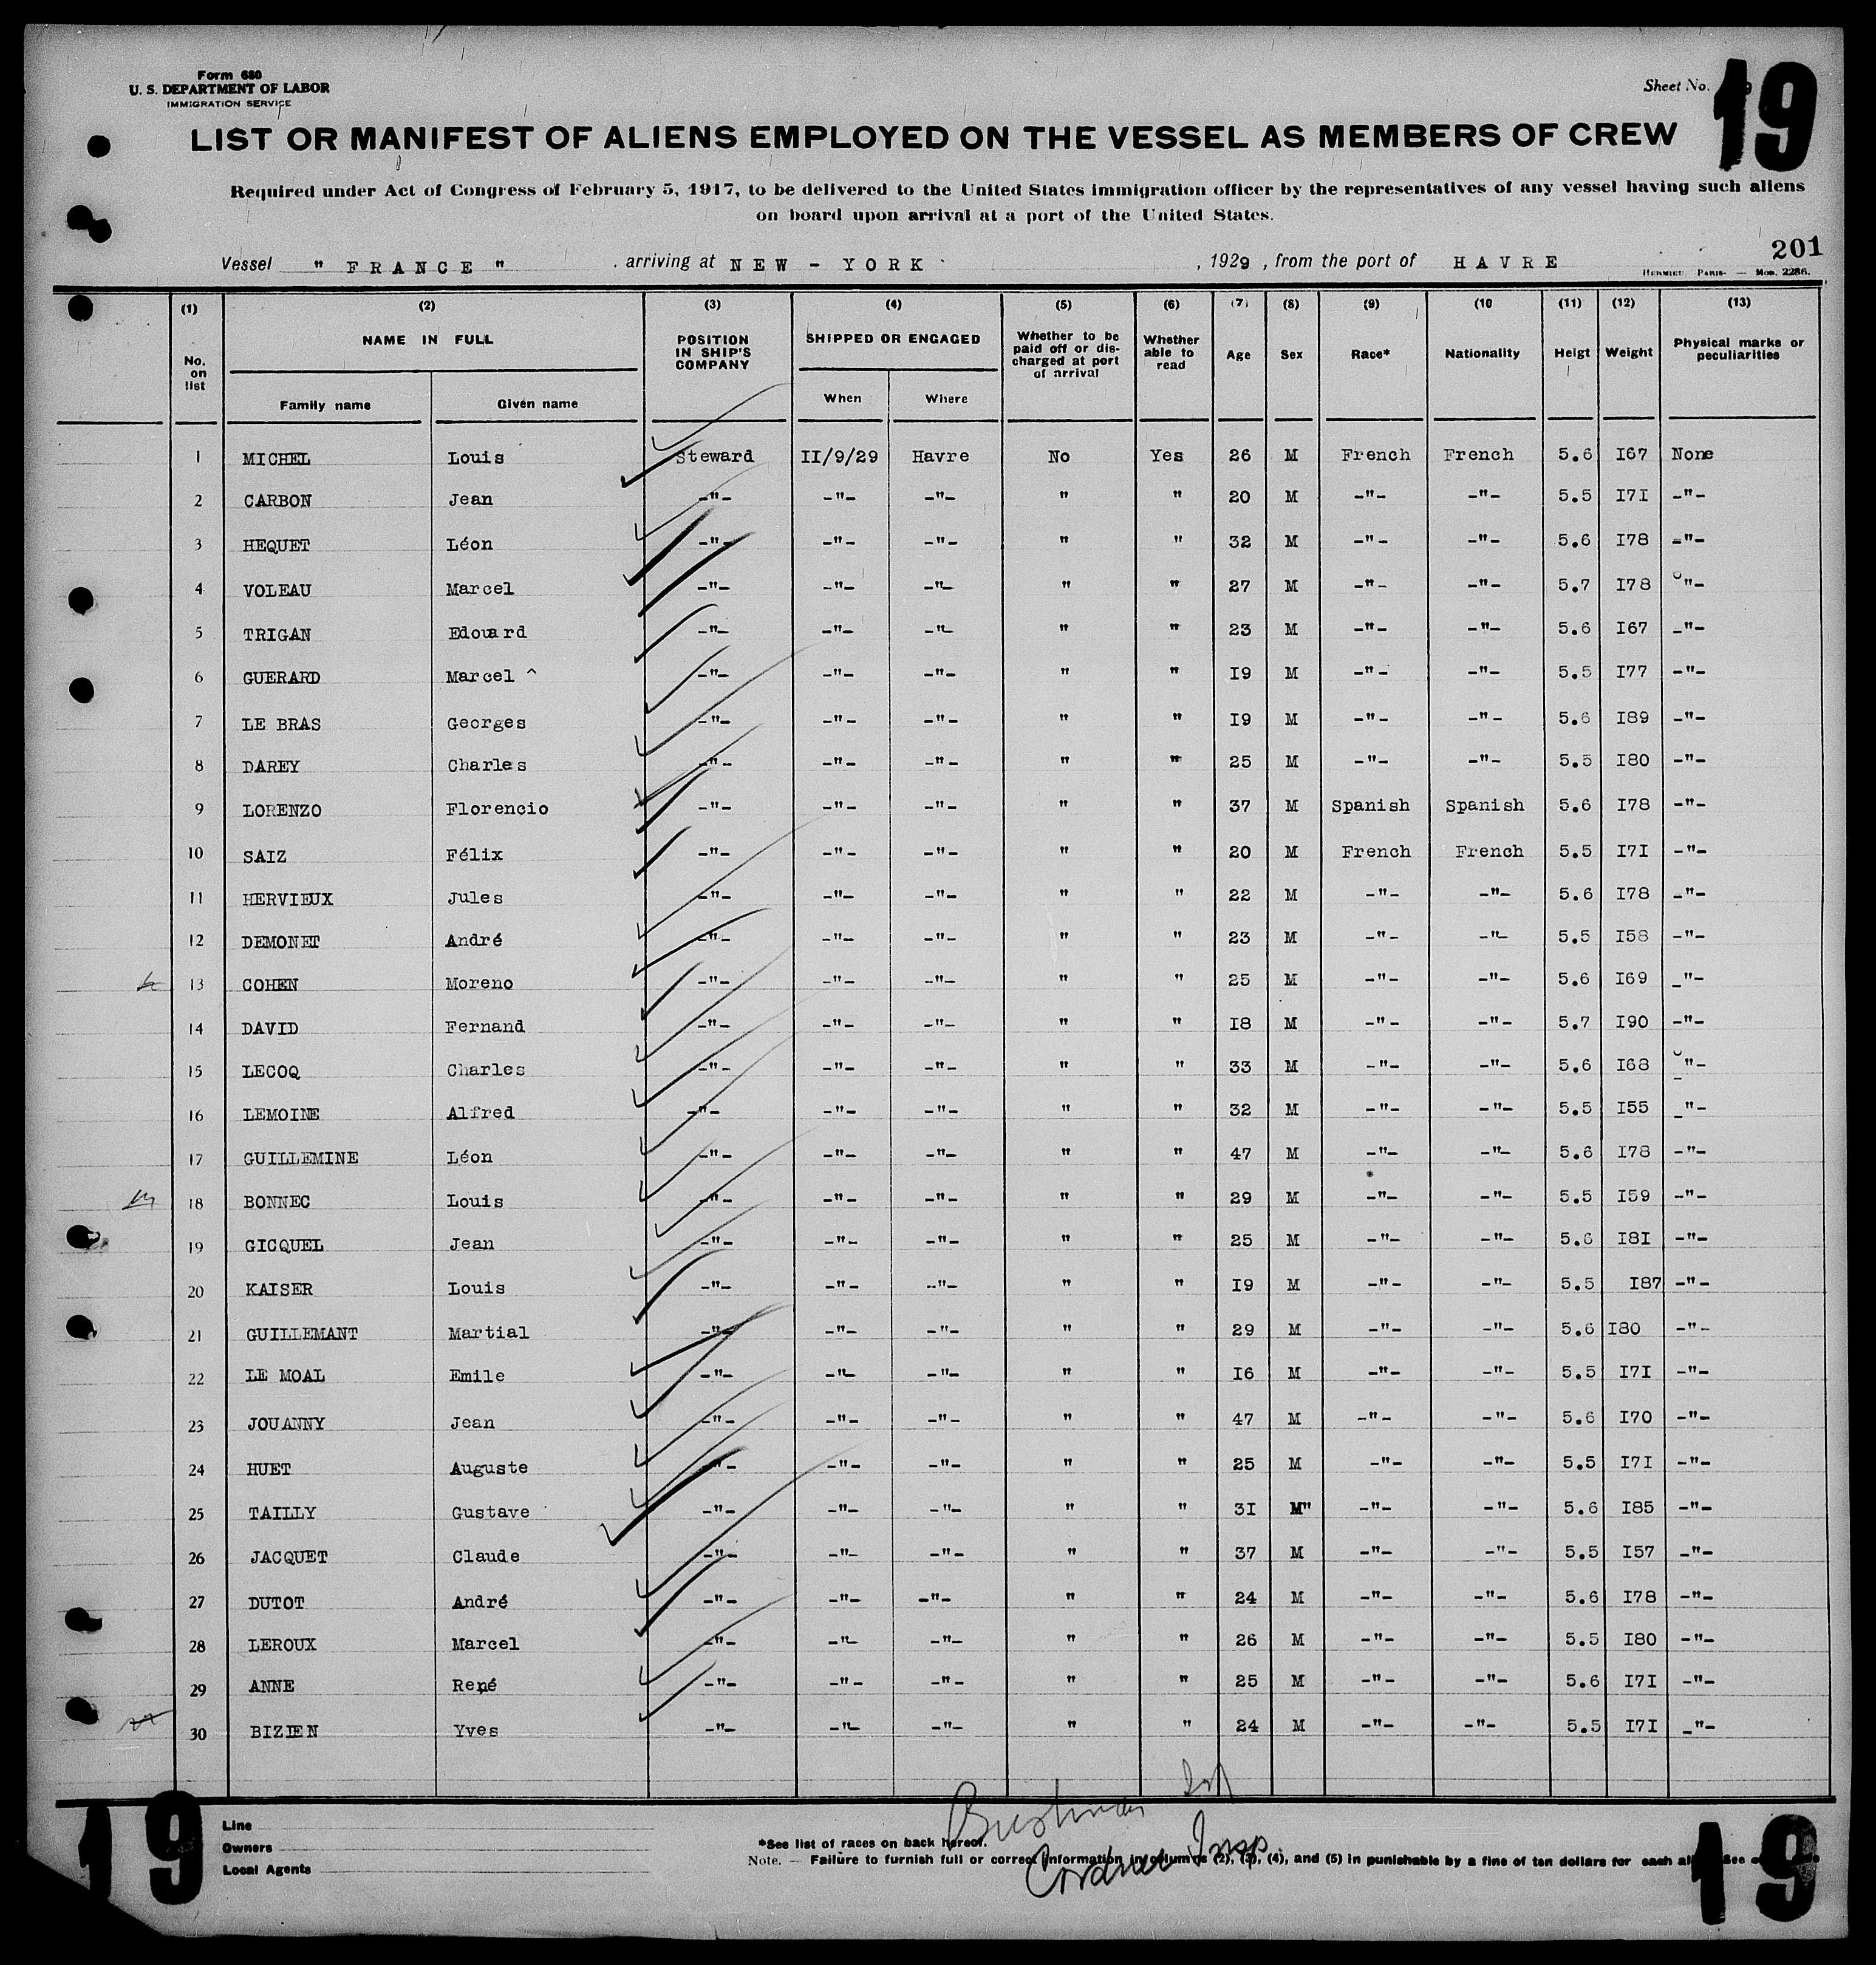 Form 680
U. S. DEPARTMENT OF LABOR
IMMIGRATION SERVICE
Sheet No.
19
LIST OR MANIFEST OF ALIENS EMPLOYED ON THE VESSEL AS MEMBERS OF CREW
Required under Act of Congress of February 5, 1917, to be delivered to the United States immigration officer by the representatives of any vessel having such aliens
on board upon arrival at a port of the United States.
201
Vessel " FRANCE " , arriving at NEW - YORK , 1929 , from the port of HAVRE
HERMIEU PARIS- — Mod. 2286.
(1) (2) (3) (4) (5) (6) (7) (8) (9) (10 (11) (12) (13)
No. on list NAME IN FULL POSITION IN SHIP'S COMPANY SHIPPED OR ENGAGED Whether to be paid off or discharged at port of arrival Whether able to read Age Sex Race* Nationality Heigt Weight Physical marks or peculiarities
Family name Given name When Where
1 MICHEL Louis Steward II/9/29 Havre No Yes 26 M French French 5.6 I67 None
2 CARBON Jean -"- -"- -"- " " 20 M -"- -"- 5.5 I7I -"-
3 HEQUET Léon -"- -"- -"- " " 32 M -"- -"- 5.6 I78 -"-
4 VOLEAU Marcel -"- -"- -"- " " 27 M -"- -"- 5.7 I78 "-
5 TRIGAN Edouard -"- -"- -"- " " 23 M -"- -"- 5.6 I67 -"-
6 GUERARD Marcel ^ -"- -"- -"- " " I9 M -"- -"- 5.5 I77 -"-
7 LE BRAS Georges -"- -"- -"- " " I9 M -"- -"- 5.6 I89 -"-
8 DAREY Charles -"- -"- -"- " " 25 M -"- -"- 5.5 I80 -"-
9 LORENZO Florencio -"- -"- -"- " " 37 M Spanish Spanish 5.6 I78 -"-
10 SAIZ Félix -"- -"- -"- " " 20 M French French 5.5 I7I -"-
11 HERVIEUX Jules -"- -"- -"- " " 22 M -"- -"- 5.6 I78 -"-
12 DEMONET André -"- -"- -"- " " 23 M -"- -"- 5.5 I58 -"-
13 COHEN Moreno -"- -"- -"- " " 25 M -"- -"- 5.6 I69 -"-
14 DAVID Fernand -"- -"- -"- " " I8 M -"- -"- 5.7 I90 -"-
15 LECOQ Charles -"- -"- -"- " " 33 M -"- -"- 5.6 I68 "-
16 LEMOINE Alfred -"- -"- -"- " " 32 M -"- -"- 5.5 I55 -"-
17 GUILLEMINE Léon -"- -"- -"- " " 47 M -"- -"- 5.6 I78 -"-
18 BONNEC Louis -"- -"- -"- " " 29 M -"- -"- 5.5 I59 -"-
19 GICQUEL Jean -"- -"- -"- " " 25 M -"- -"- 5.6 I8I -"-
20 KAISER Louis -"- -"- -"- " " I9 M -"- -"- 5.5 I87 -"-
21 GUILLEMANT Martial -"- -"- -"- " " 29 M -"- -"- 5.6 I80 -"-
22 LE MOAL Emile -"- -"- -"- " " I6 M -"- -"- 5.5 I7I -"-
23 JOUANNY Jean -"- -"- -"- " " 47 M -"- -"- 5.6 I70 -"-
24 HUET Auguste -"- -"- -"- " " 25 M -"- -"- 5.5 I7I -"-
25 TAILLY Gustave -"- -"- -"- " " 3I M" -"- -"- 5.6 I85 -"-
26 JACQUET Claude -"- -"- -"- " " 37 M -"- -"- 5.5 I57 -"-
27 DUTOT André -"- -"- -"- " " 24 M -"- -"- 5.6 I78 -"-
28 LEROUX Marcel -"- -"- -"- " " 26 M -"- -"- 5.5 I80 -"-
29 ANNE René -"- -"- -"- " " 25 M -"- -"- 5.6 I7I -"-
30 BIZIEN Yves -"- -"- -"- " " 24 M -"- -"- 5.5 I7I -"-
Line
Owners
Local Agents
*See list of races on back hereof.
Insp.
Note. — Failure to furnish full or correct information in columns (2), (3), (4), and (5) in punishable by a fine of ten dollars for each See
19
19